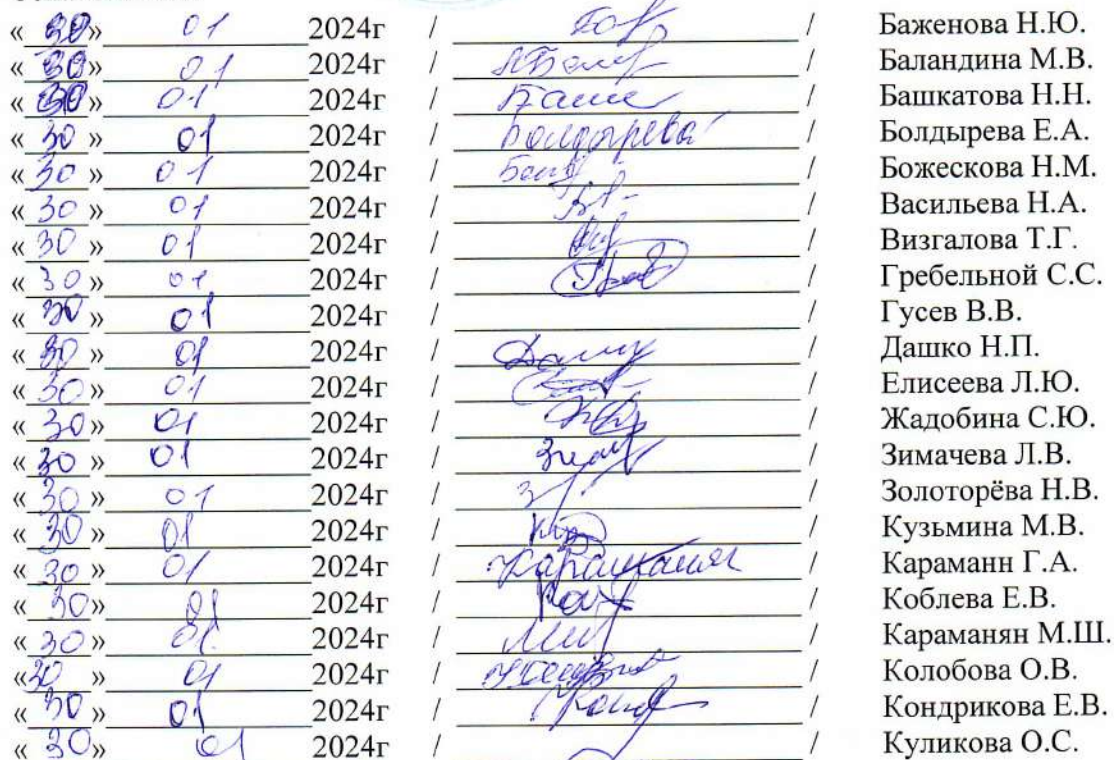 « 30 » 01 2024г / / Баженова Н.Ю.
« 30 » 01 2024г / / Баландина М.В.
« 30 » 01 2024г / / Башкатова Н.Н.
« 30 » 01 2024г / Болдырева / Болдырева Е.А.
« 30 » 01 2024г / / Божескова Н.М.
« 30 » 01 2024г / / Васильева Н.А.
« 30 » 01 2024г / / Визгалова Т.Г.
« 30 » 01 2024г / / Гребельной С.С.
« 30 » 01 2024г / / Гусев В.В.
« 30 » 01 2024г / / Дашко Н.П.
« 30 » 01 2024г / / Елисеева Л.Ю.
« 30 » 01 2024г / / Жадобина С.Ю.
« 30 » 01 2024г / / Зимачева Л.В.
« 30 » 01 2024г / / Золоторёва Н.В.
« 30 » 01 2024г / / Кузьмина М.В.
« 30 » 01 2024г / / Караманн Г.А.
« 30 » 01 2024г / / Коблева Е.В.
« 30 » 01. 2024г / / Караманян М.Ш.
« 30 » 01 2024г / / Колобова О.В.
« 30 » 01 2024г / / Кондрикова Е.В.
« 30 » 01 2024г / / Куликова О.С.